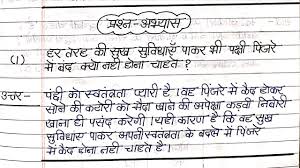 प्रश्न-अभ्यास
(1) हर तरह की सुख सुविधाएँ पाकर भी पक्षी पिंजरे
में बंद क्यों नहीं होना चाहते ?
उत्तर- पक्षी को स्वतंत्रता प्यारी है। वह पिंजरे में कैद होकर
सोने की कटोरी की मैदा खाने की अपेक्षा कड़वी निबौरी
खाना ही पसंद करेगी। यही कारण है कि वह सुख
सुविधाएँ पाकर अपनी स्वतंत्रता के बदले में पिंजरे
में कैद होना नहीं चाहते है।